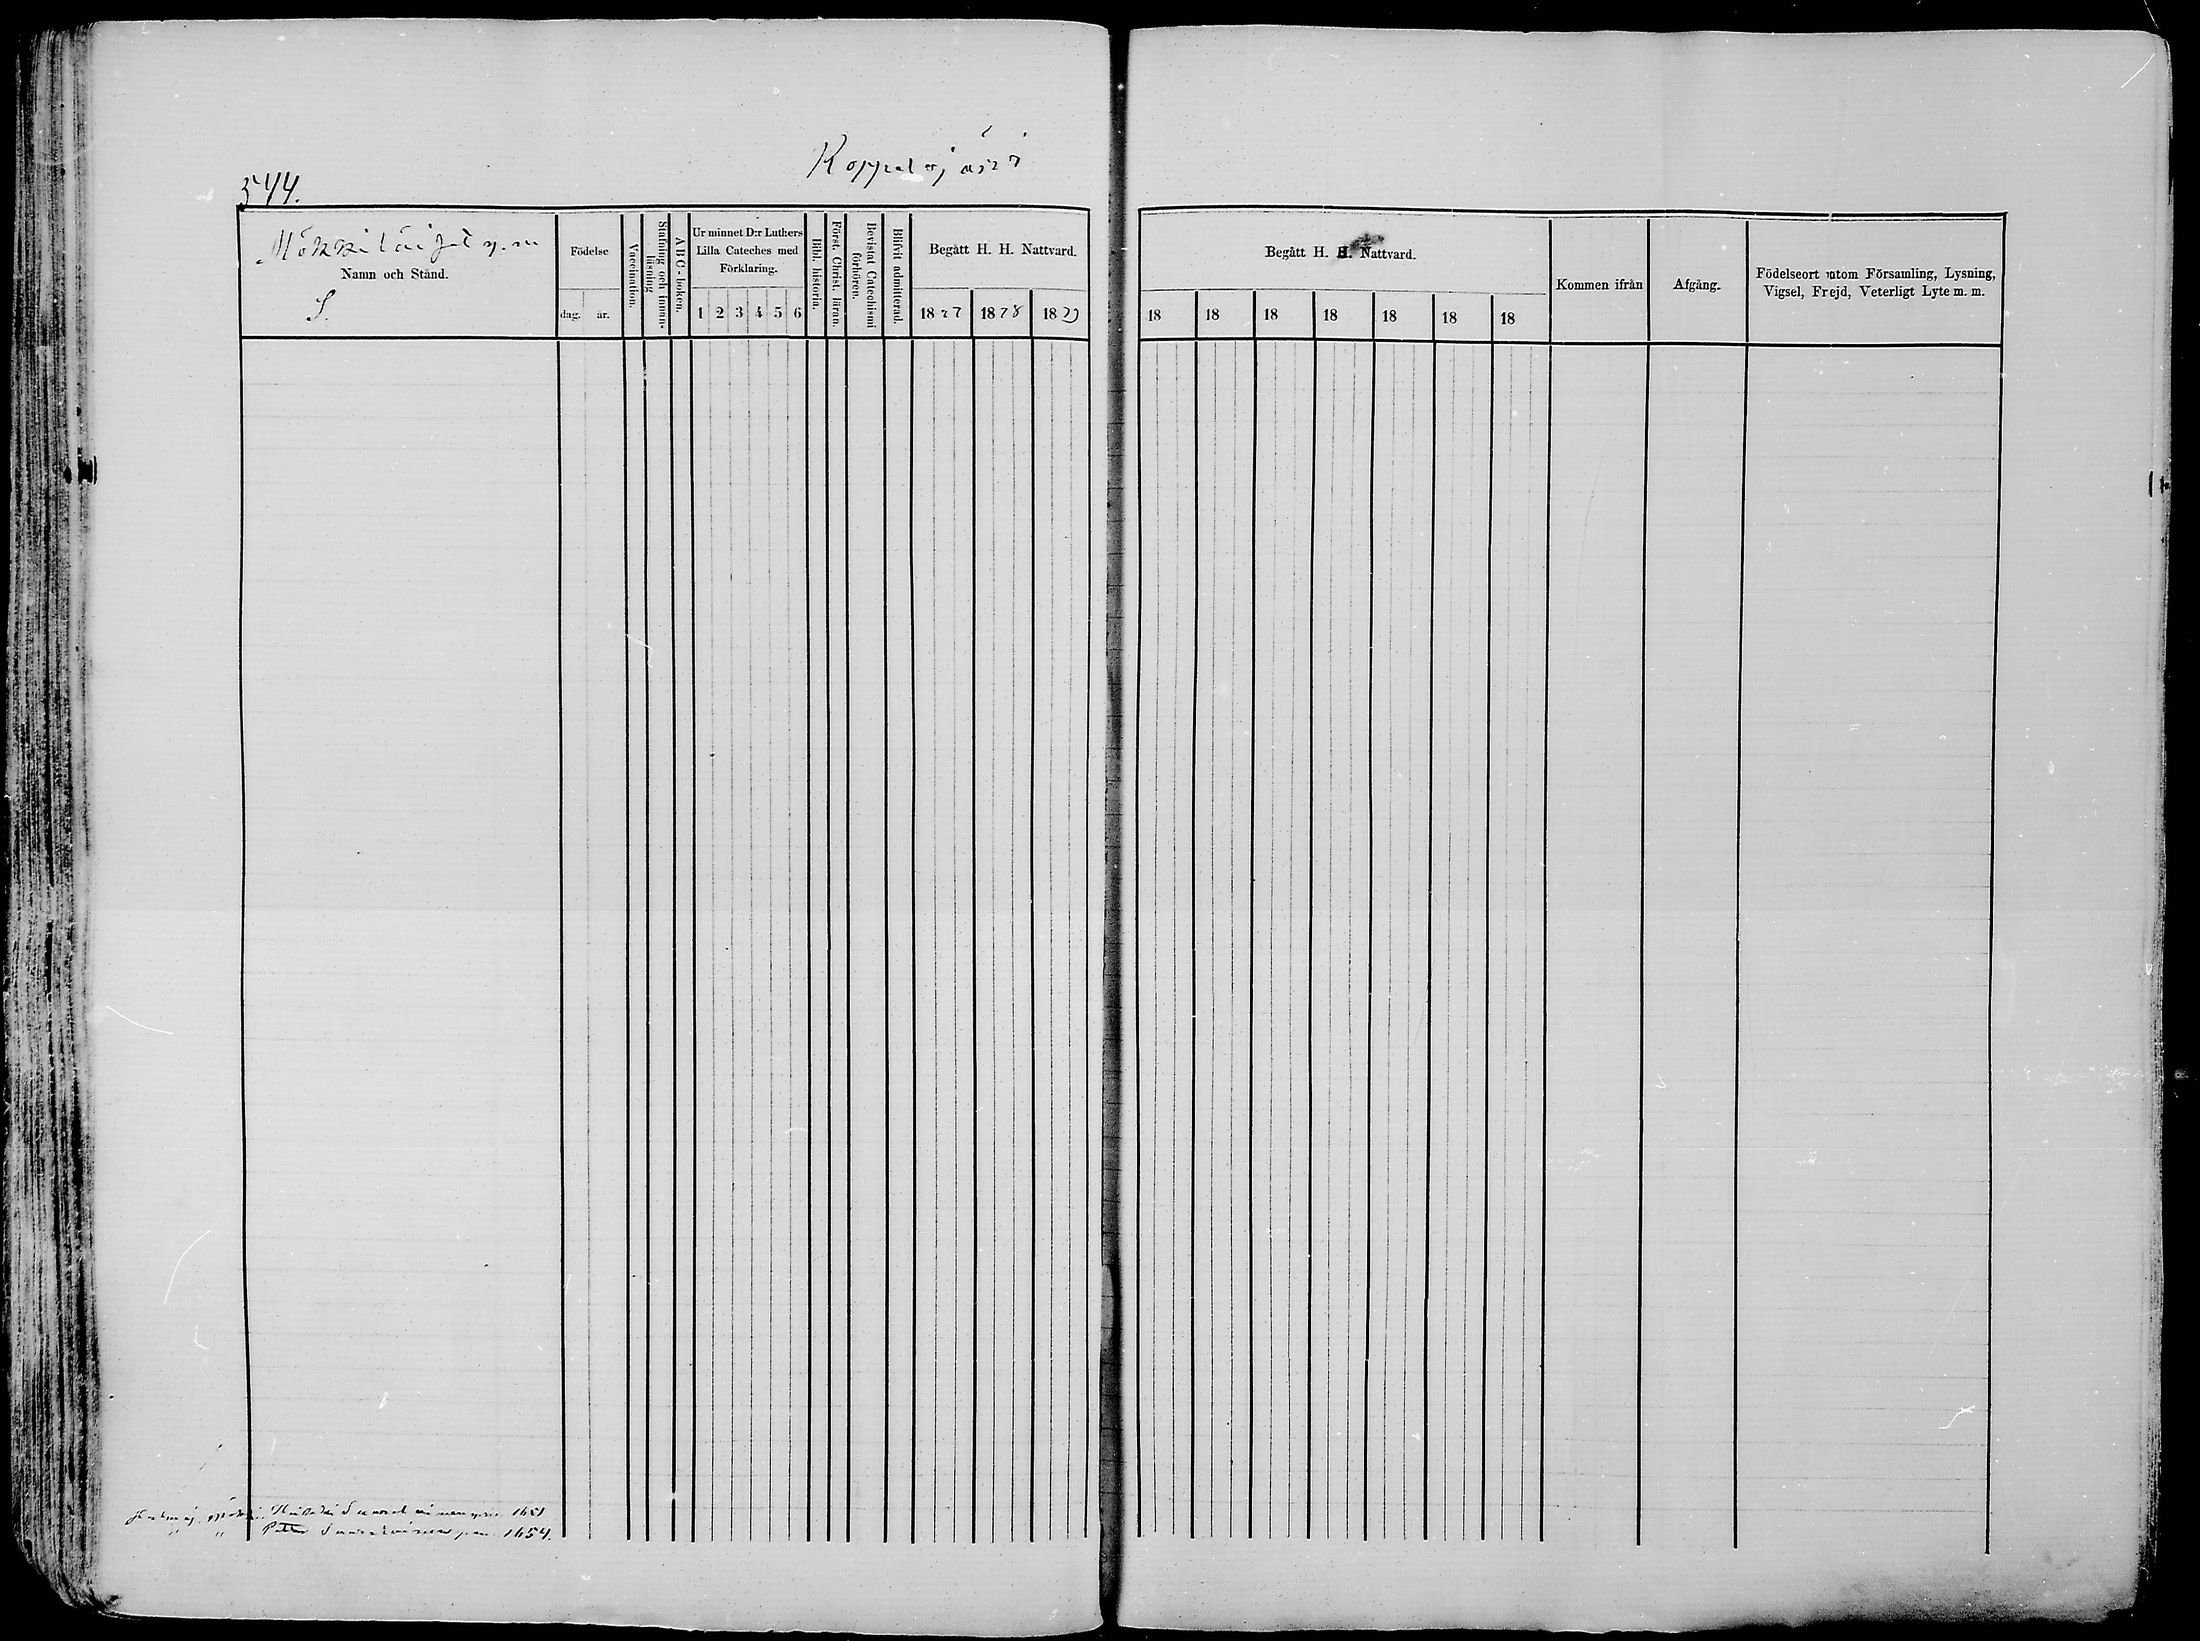 544.
Koppelojärvi
Namn och Stånd.
S.
Födelse
dag. år.
Vaccination.
Stafning och innan-läsning
ABC-boken.
Ur minnet D:r Luthers
Lilla Cateches med
Förklaring.
1 2 3 4 5 6
Bibl. historia.
Först. Christ. läran.
Bevistat Catechismi förhören.
Blifvit admitterad.
Begått H. H. Nattvard.
1827 1828 1829
Begått H. H. Nattvard.
18 18 18 18 18 18 18
Kommen ifrån
Afgång.
Födelseort utom Församling, Lysning,
Vigsel, Frejd, Veterligt Lyte m. m.
1651
" " Petter 1654.